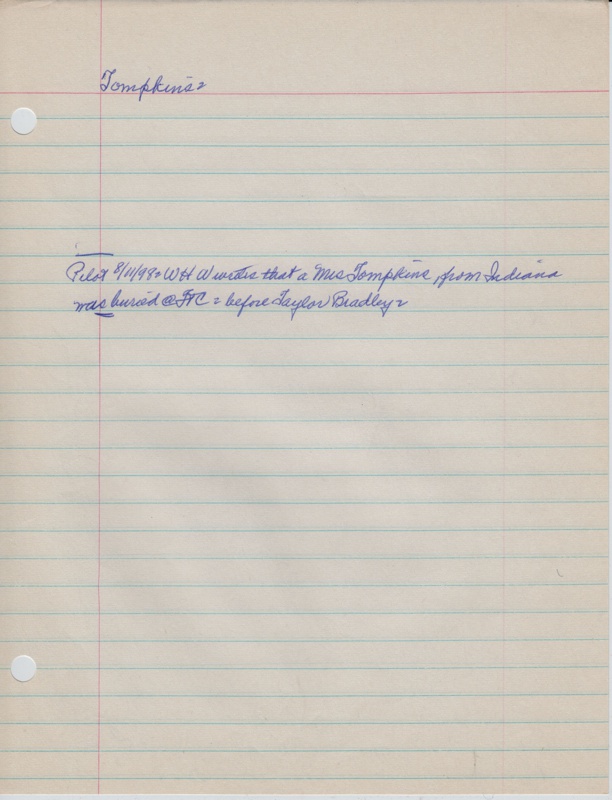 Tompkins=
Pilot 8/11/98= WHW writes that a Mrs Tompkins, from Indiana
was buried @ FTC = before Taylor Bradley=